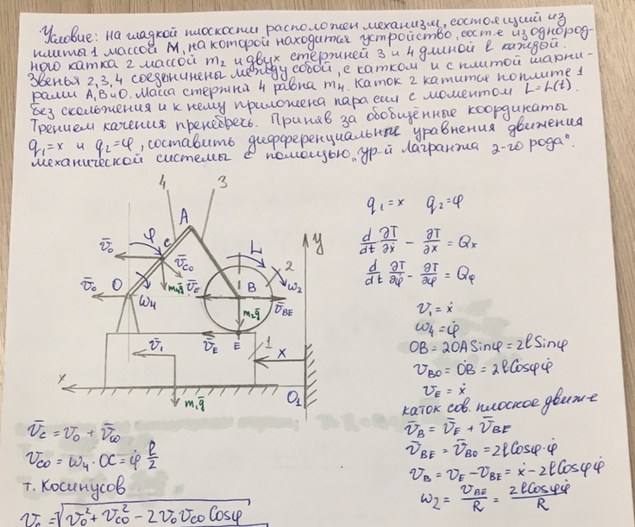 Условие: на гладкой плоскости расположен механизм, состоящий из
плиты 1 массой M, на которой находится устройство, сост-е из однород-
ного катка 2 массой m₂ и двух стержней 3 и 4 длиной l каждой.
Звенья 2,3,4 соединены между собой, с катком и с плитой шарни-
рами A, B и O. Масса стержня 4 равна m₄. Каток 2 катится по плите 1
без скольжения и к нему приложена пара сил с моментом L=L(t).
Трением качения пренебречь. Приняв за обобщённые координаты
q₁=x и q₂=φ, составить дифференциальные уравнения движения
механической системы с помощью „ур-й Лагранжа 2-го рода".
q₁=x q₂=φ
d/dt ∂T/∂ẋ - ∂T/∂x = Qx
d/dt ∂T/∂φ̇ - ∂T/∂φ = Qφ
4 3
A
y
φ C L 2
v̄₀ v̄co
v̄₀ O ω₄ m₄ḡ v̄E B ω₂
m₂ḡ v̄BE
v̄E E 1
v̄₁ x
x m₁ḡ O₁
v₁=ẋ
ω₄=φ̇
OB=2OA Sinφ=2l Sinφ
vBO=ȮB=2l Cosφ φ̇
vE=ẋ
каток сов. плоское движ-е
v̄B=v̄E+v̄BE
v̄BE=v̄BO=2l Cosφ·φ̇
vB=vE-vBE=ẋ-2l Cosφ φ̇
ω₂=vBE/R=2l Cosφ φ̇/R
v̄c=v̄o+v̄co
vco=ω₄·OC=φ̇ l/2
т. Косинусов
vc=√v₀²+vco²-2v₀vco Cosφ